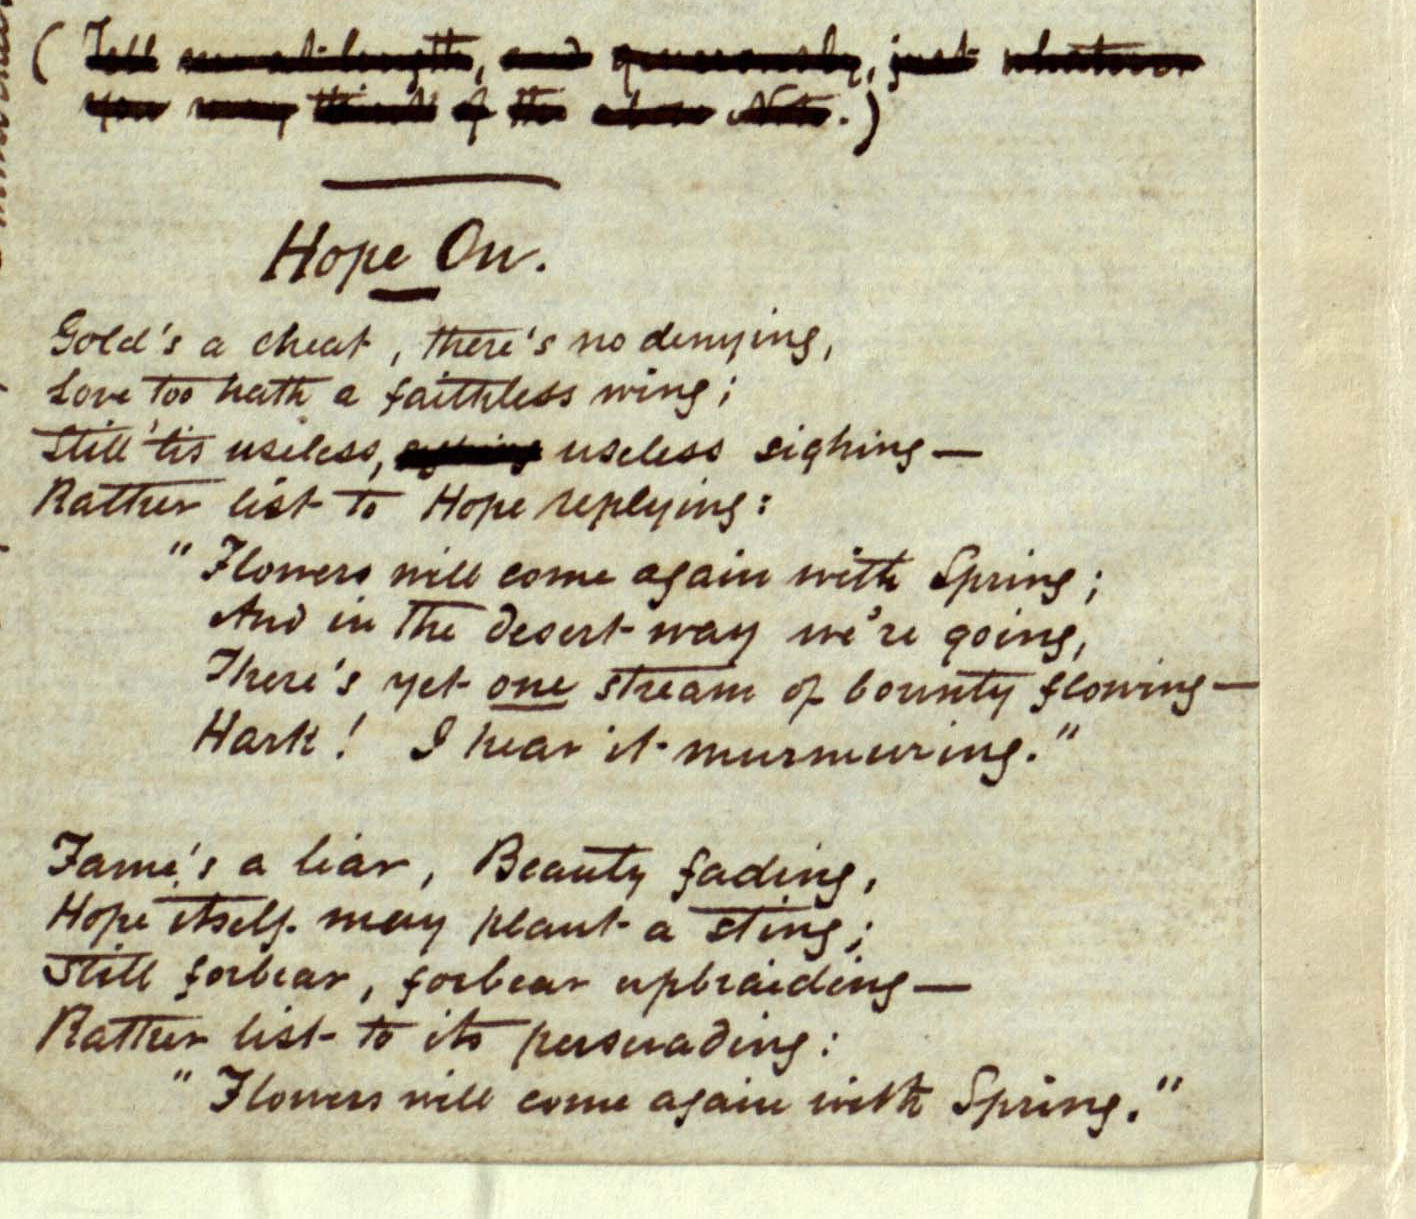 (Tell me at length, and generously, just whatever
you may think of the above Note.)
Hope On.
Gold's a cheat, there's no denying,
Love too hath a faithless wing;
Still 'tis useless, useless sighing—
Rather list to Hope replying:
"Flowers will come again with Spring;
And in the desert way we're going,
There's yet one stream of bounty flowing—
Hark! I hear it murmuring."
Fame's a liar, Beauty fading,
Hope itself may plant a sting;
Still forbear, forbear upbraiding—
Rather list to its persuading:
"Flowers will come again with Spring."